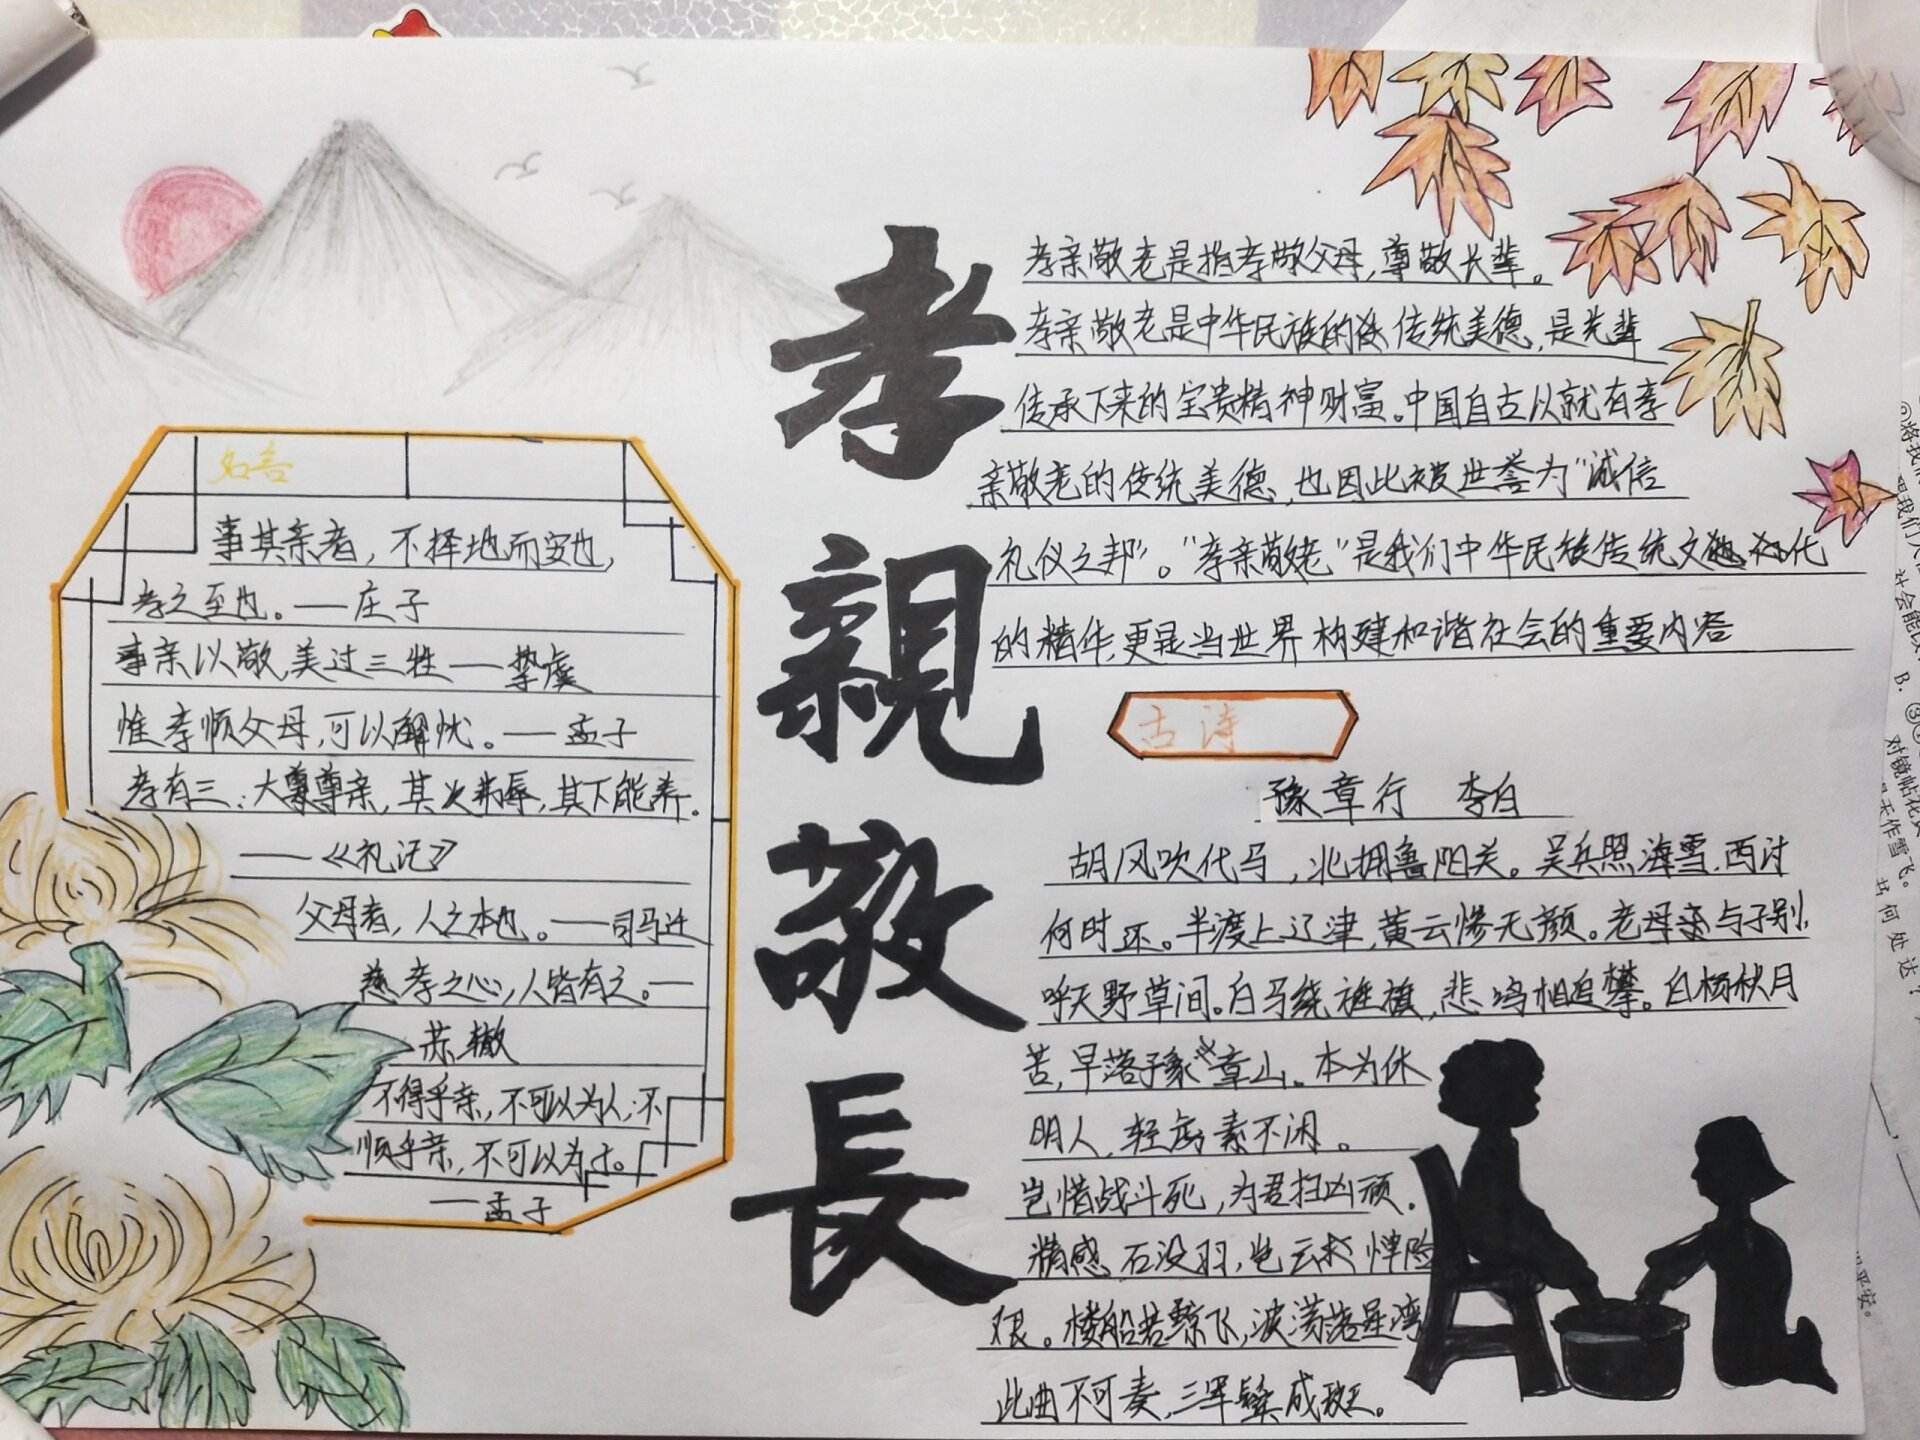 孝親敬長
孝亲敬老是指孝敬父母,尊敬长辈。
孝亲敬老是中华民族的传统美德,是先辈
传承下来的宝贵精神财富。中国自古以就有孝
亲敬老的传统美德,也因此被世誉为"诚信
礼仪之邦"。"孝亲敬老"是我们中华民族传统文化
的精华,更是当世界构建和谐社会的重要内容
名言
事其亲者,不择地而安也,
孝之至也。——庄子
事亲以敬,美过三牲——挚虞
惟孝顺父母,可以解忧。——孟子
孝有三:大尊尊亲,其次弗辱,其下能养。
——《礼记》
父母者,人之本也。——司马迁
慈孝之心,人皆有之。—
苏辙
不得乎亲,不可以为人;不
顺乎亲,不可以为子。
—孟子
古诗
豫章行 李白
胡风吹代马,北拥鲁阳关。吴兵照海雪,西讨
何时还。半渡上辽津,黄云惨无颜。老母亲与子别,
呼天野草间。白马绕旌旗,悲鸣相追攀。白杨秋月
苦,早落豫章山。本为休
明人,轻虏素不闲。
岂惜战斗死,为君扫凶顽。
精感石没羽,岂云惮险
艰。楼船若鲸飞,波荡落星湾
此曲不可奏,三军鬓成斑。